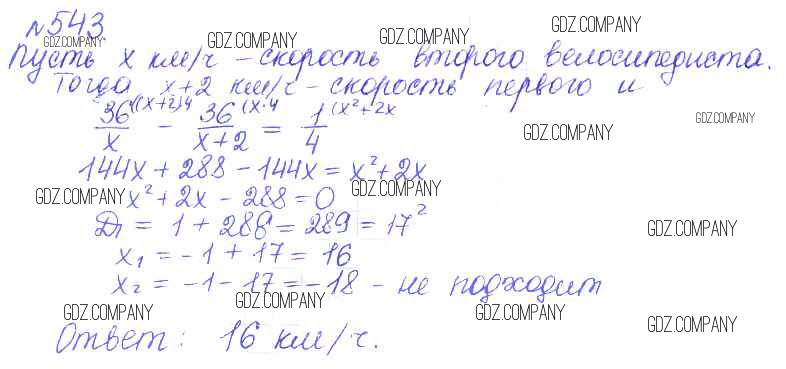 №543
Пусть x км/ч – скорость второго велосипедиста.
Тогда x+2 км/ч – скорость первого и
36/x ^((x+2)4 – 36/(x+2) ^(x·4 = 1/4 ^(x²+2x
144x + 288 – 144x = x² + 2x
x² + 2x – 288 = 0
D₁ = 1 + 288 = 289 = 17²
x₁ = –1 + 17 = 16
x₂ = –1 – 17 = –18 – не подходит
Ответ: 16 км/ч.
GDZ.COMPANY
GDZ.COMPANY
GDZ.COMPANY
GDZ.COMPANY
GDZ.COMPANY
GDZ.COMPANY
GDZ.COMPANY
GDZ.COMPANY
GDZ.COMPANY
GDZ.COMPANY
GDZ.COMPANY
GDZ.COMPANY
GDZ.COMPANY